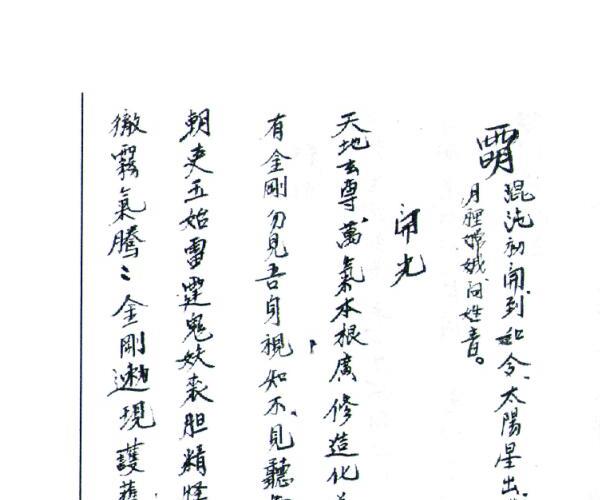 混沌初開到如今太陽星出
月裡嫦娥问姓音。
開光
天地玄尊萬氣本根廣修造化
有金剛勿見吾身視如不見聽
朝吏五始雷霆鬼妖喪胆精怪
徹霧氣騰〻金剛速現護